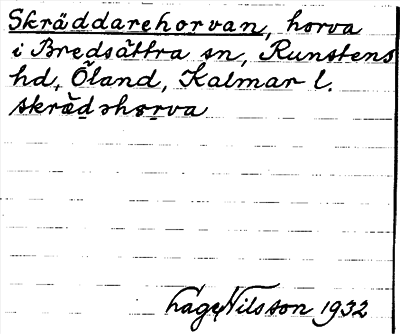 Skräddarehorvan, horva
i Bredsättra sn, Runstens
hd, Öland, Kalmar l.
skräd̳ǝho̳rva
Lage Nilsson 1932